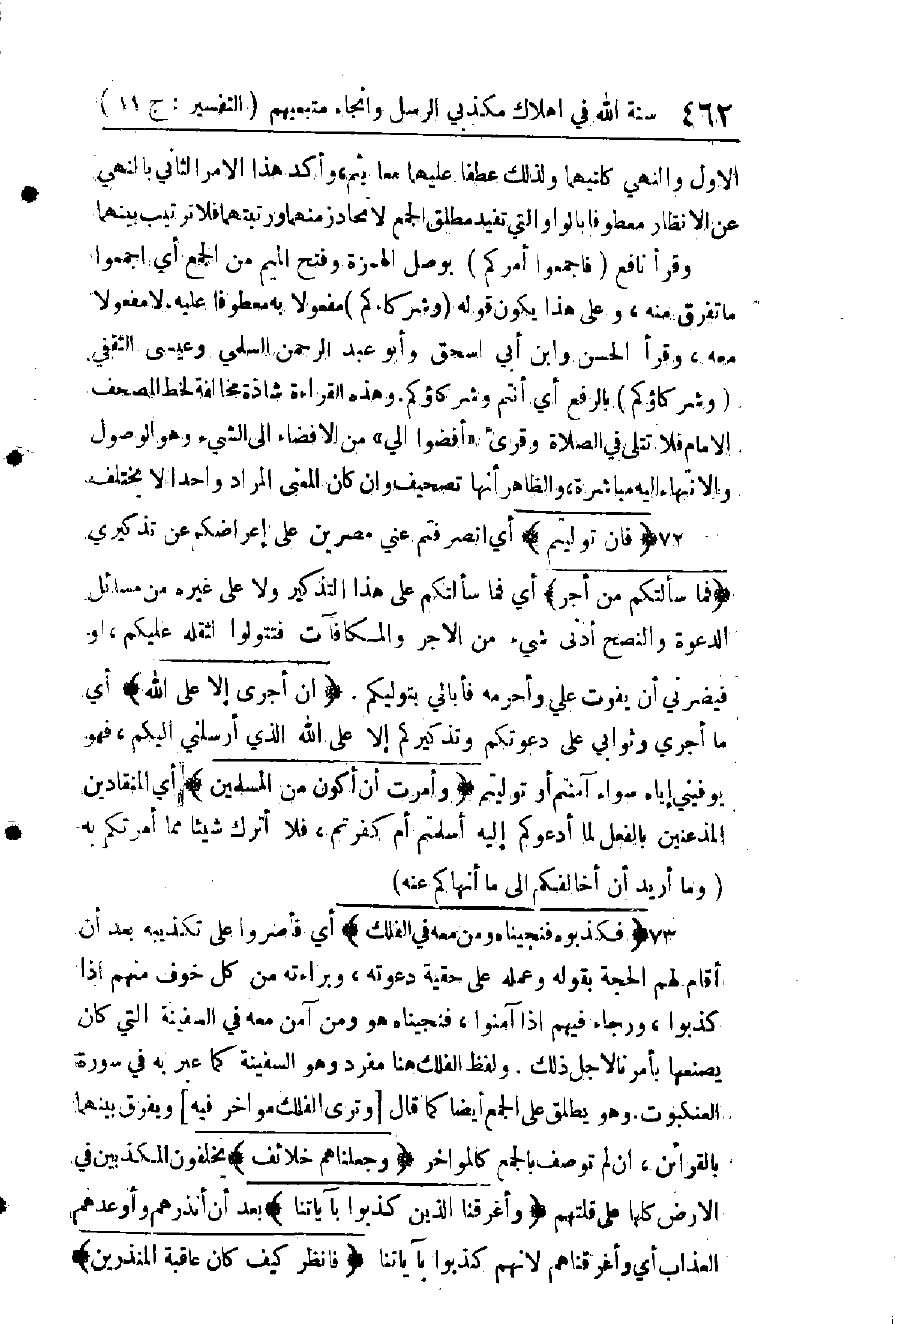 ٤٦٢ سنة الله في اهلاك مكذبي الرسل وانجاء متبعيهم ( التفسير : ج ١١ )
الاول والنهي كانيهما ولذلك عطفا عليهما معا بثم، وأكد هذا الامر الثاني بالنهي
عن الانظار معطوفا بالواو التي تفيد مطلق الجمع لاتحادزمنهماورتبتهمافلاترتيب بينهما
وقرأ نافع ( فاجمعوا أمركم ) بوصل الهمزة وفتح الميم من الجمع أي اجمعوا
ما تفرق منه ، و على هذا يكون قوله (وشركاءكم ) مفعولا به معطوفا عليه. لا مفعولا
معه ، وقرأ الحسن وابن أبي اسحق وأبو عبد الرحمن السلمي وعيسى الثقفي
( وشركاؤكم ) بالرفع أي أنتم وشركاؤكم. وهذه القراءة شاذة مخالفة لخط المصحف
الامام فلا تتلى في الصلاة وقرئ «أفضوا الي» من الافضاء الى الشيء وهو الوصول
والانتهاء اليه مباشرة، والظاهر أنها تصحيف وان كان المعنى المراد واحدا لا يختلف
٧٢﴿ فان توليتم ﴾ أي انصرفتم عني مصرين على إعراضكم عن تذكيري
﴿فما سألتكم من أجر﴾ أي فما سألتكم على هذا التذكير ولا على غيره من مسائل
الدعوة والنصح أدنى شيء من الاجر والمكافآت فتتولوا لثقله عليكم ، او
فيضرني أن يفوت علي وأحرمه فأبالي بتوليكم . ﴿ ان أجرى إلا على الله﴾ أي
ما أجري وثوابي على دعوتكم وتذكيركم إلا على الله الذي أرسلني اليكم ، فهو
يوفيني إياه سواء آمنتم أو توليتم ﴿ وأمرت أن أكون من المسلمين ﴾ أي المنقادين
المذعنين بالفعل لما أدعوكم إليه أسلمتم أم كفرتم ، فلا أترك شيئا مما أمرتكم به
( وما أريد أن أخالفكم الى ما أنهاكم عنه)
٧٣﴿ فكذبوه فنجيناه ومن معه في الفلك ﴾ أي فأصروا على تكذيبه بعد أن
أقام لهم الحجة بقوله وعمله على حقية دعوته ، وبراءته من كل خوف منهم اذا
كذبوا ، ورجاء فيهم اذا آمنوا ، فنجيناه هو ومن آمن معه في السفينة التي كان
يصنعها بأمرنا لاجل ذلك . ولفظ الفلك هنا مفرد وهو السفينة كما عبر به في سورة
العنكبوت. وهو يطلق على الجمع أيضا كما قال [وترى الفلك مواخر فيه] ويفرق بينهما
بالقرائن ، ان لم توصف بالجمع كالمواخر ﴿ وجعلناهم خلائف ﴾ يخلفون المكذبين في
الارض كلها على قلتهم ﴿ وأغرقنا الذين كذبوا بآياتنا ﴾ بعد أن أنذرهم وأوعدهم
العذاب أي وأغرقناهم لانهم كذبوا بآياتنا ﴿ فانظر كيف كان عاقبة المنذرين﴾